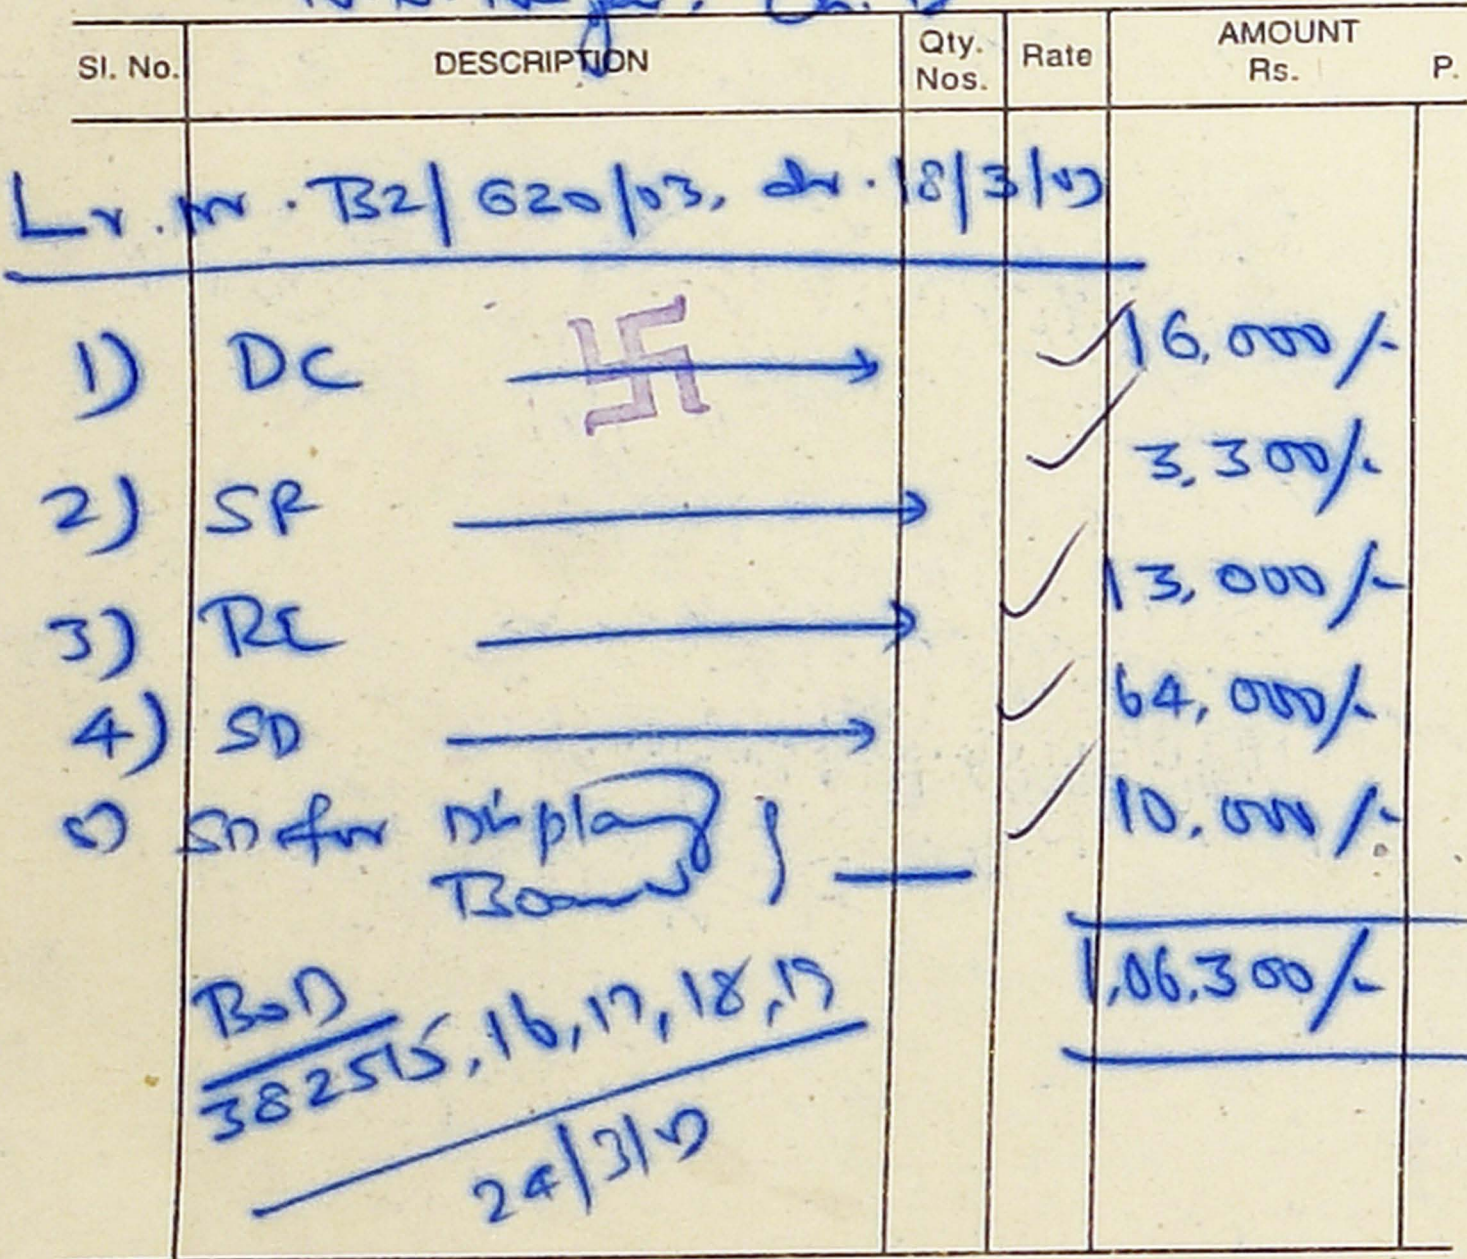 Sl. No. DESCRIPTION Qty. Nos. Rate AMOUNT Rs. P.
Lr. nr. B2/620/03, dr. 18/3/03
1) DC 16,000/-
2) SR 3,300/-
3) RC 13,000/-
4) SD 64,000/-
5) SD for Display 10,000/-
Board
1,06,300/-
BOD
382515, 16, 17, 18, 19
24/3/03